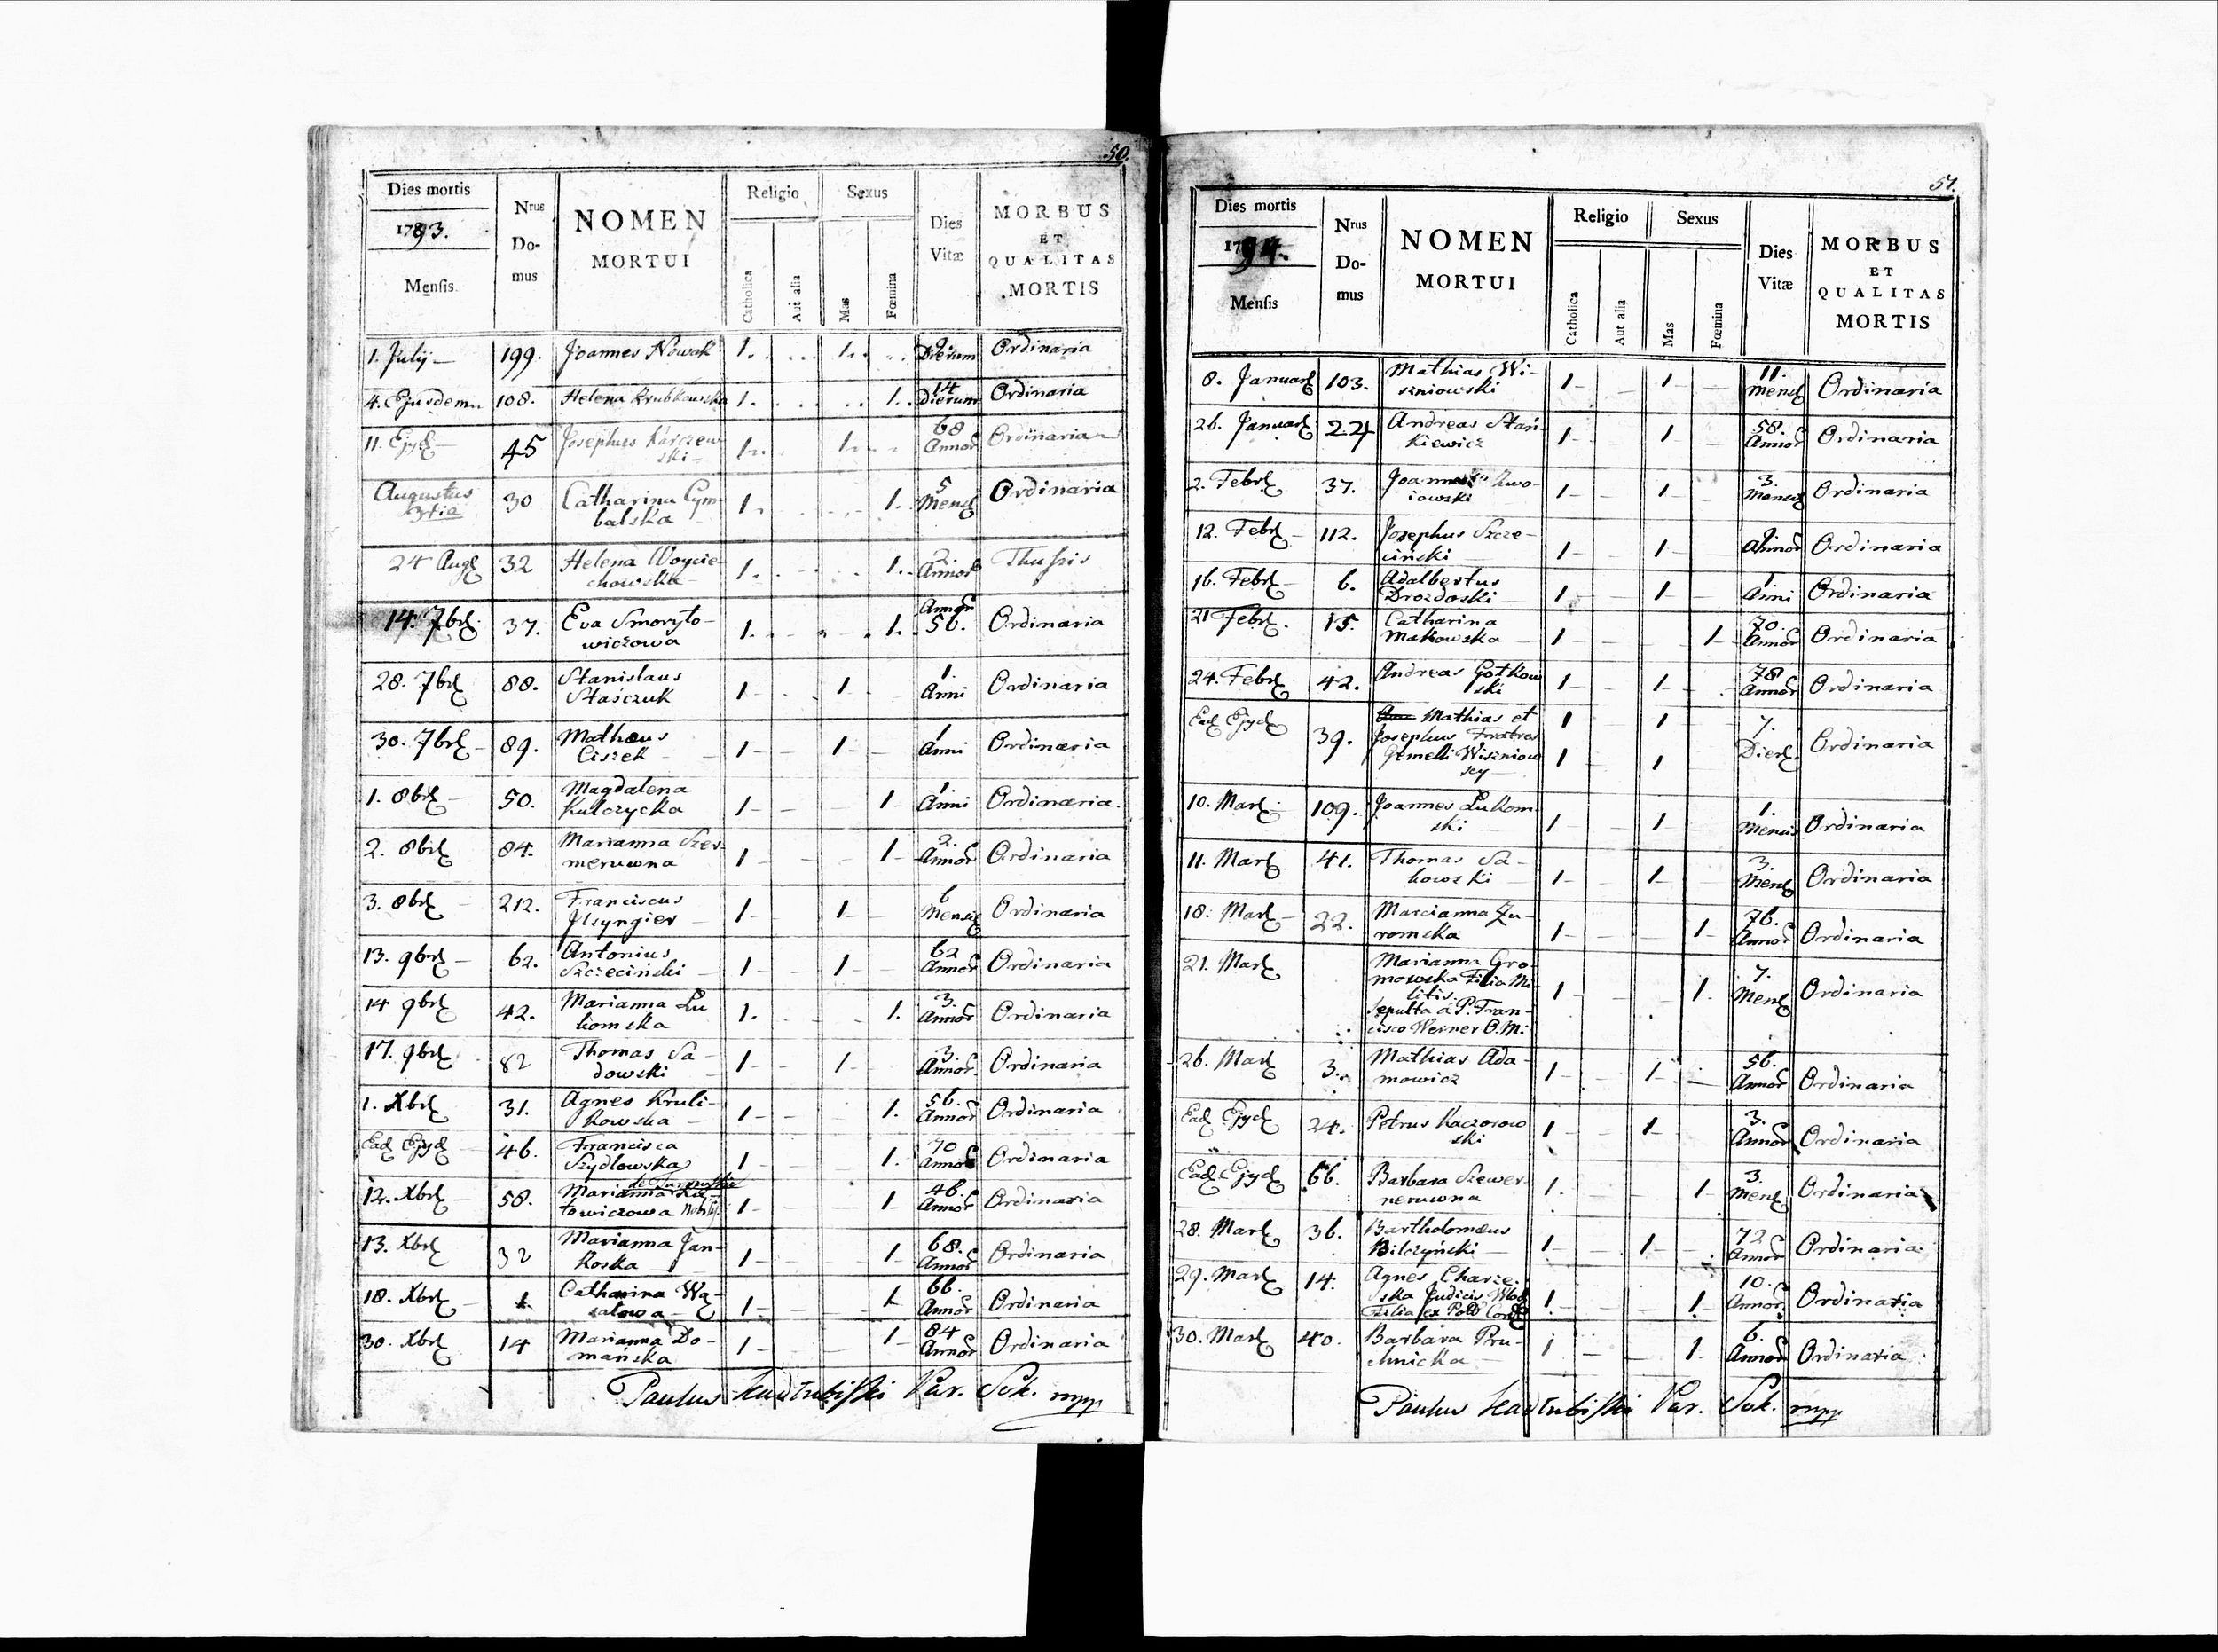 50.
Dies mortis
1793.
Mensis
Nrus
Do-
mus
NOMEN
MORTUI
Religio
Catholica
Aut alia
Sexus
Mas
Fœmina
Dies
Vitæ
MORBUS
ET
QUALITAS
MORTIS
1. July 199. Joannes Nowak 1. 1. Dierum Ordinaria
4. Ejusdem 108. Helena Krubkowska 1. 1. 14 Dierum Ordinaria
11. Ejusd 45 Josephus Karczew
ski 1. 1. 68 Annor Ordinaria
Augustus
3tia 30 Catharina Cym
balska 1. 1. 5 Mens Ordinaria
24 Aug 32 Helena Woycie
chowska 1. 1. 2. Annor Thussis
14. 7br 37. Eva Smoryto-
wiczowa 1. 1. Annor 56. Ordinaria
28. 7br 88. Stanislaus
Staśczuk 1 1 1. Anni Ordinaria
30. 7br 89. Matheus
Ciszek 1 1 1 Anni Ordinaria
1. 8br 50. Magdalena
Kulczycka 1 1 1 Anni Ordinaria.
2. 8br 84. Marianna Szer
meruwna 1 1 2. Annor Ordinaria
3. 8br 212. Franciscus
1 1 6 Mensi Ordinaria
13. 9br 62. Antonius
Szczeciński 1 1 62 Annor Ordinaria
14 9br 42. Marianna Lu
komska 1. 1. 3. Annor Ordinaria
17. 9br 82 Thomas Sa-
dowski 1 1 3. Annor Ordinaria
1. Xbr 31. Agnes Kruli-
kowska 1 1. 56. Annor Ordinaria
Ead Ejusd 46. Francisca
Szydlowska 1 1. 70 Annor Ordinaria
12. Xbr 58. Marianna
towiczowa 1 1 46. Annor Ordinaria
13. Xbr 32 Marianna Jan-
koska 1 1 68. Annor Ordinaria
18. Xbr 1. Catharina Wą-
1 1 66. Annor Ordinaria
30. Xbr 14 Marianna Do-
mańska 1 1 84 Annor Ordinaria
Paulus Kadłubiski Par. Sok. mpp
51.
Dies mortis
1794.
Mensis
Nrus
Do-
mus
NOMEN
MORTUI
Religio
Catholica
Aut alia
Sexus
Mas
Fœmina
Dies
Vitæ
MORBUS
ET
QUALITAS
MORTIS
8. Januar 103. Mathias Wi-
szniowski 1 1 11. Mens Ordinaria
26. Januar 224 Andreas Stań-
kiewicz 1 1 58. Annor Ordinaria
2. Febr 37. Joannes Kwo-
iowski 1 1 3. Mens Ordinaria
12. Febr 112. Josephus Szcze-
ciński 1 1 Annor Ordinaria
16. Febr 6. Adalbertus
Drozdoski 1 1 1 Anni Ordinaria
21 Febr. 15. Catharina
Makowska 1 1 70. Annor Ordinaria
24. Febr 42. Andreas Gotkow
ski 1 1 78 Annor Ordinaria
Ead Ejusd 39. Mathias et 1 1
Josephus Fratres
Gemelli Wiszniow
scy 1 1 7. Dier Ordinaria
10. Mar 109. Joannes Lukom
ski 1 1 1. Mensis Ordinaria
11. Mar 41. Thomas Sa-
kowski 1 1 3. Mens Ordinaria
18. Mar 22. Marcianna Zu-
romska 1 1 76. Annor Ordinaria
21. Mar Marianna Gro
mowska Filia Mi
litis.
Sepulta à P. Fran-
cisco Werner O.M: 1 1. 7. Mens Ordinaria
26. Mar 3. Mathias Ada-
mowicz 1 1 56. Annor Ordinaria
Ead Ejusd 24. Petrus Kaczorow
ski 1 1 3. Annor Ordinaria
Ead Ejusd 66. Barbara Szewer
neruwna 1. 1 3. Mens Ordinaria
28. Mar 36. Bartholomæus
Bilczyński 1 1 72 Annor Ordinaria
29. Mar 14. Agnes Charze-
ska Judicis Wlod
Filia ex 1 1 10. Annor Ordinaria
30. Mar 40. Barbara Pru-
chnicka 1 1 6. Annor Ordinaria
Paulus Kadłubiski Par. Sok. mpp